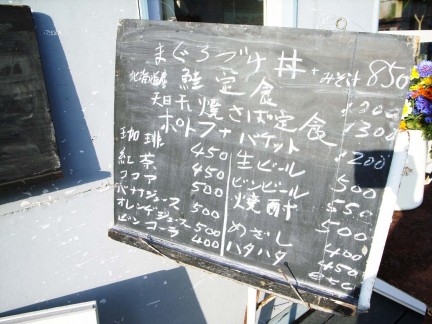 まぐろづけ丼+みそ汁 850
北海道産 鮭定食
天日干焼さば定食
ポトフ+バケット 1200
珈琲 450
紅茶 450
ココア 500
バナナジュース 500
オレンジジュース 500
ビンコーラ 400
生ビール 500
ビンビール 550
焼酎 500
400
めざし 450
ハタハタ